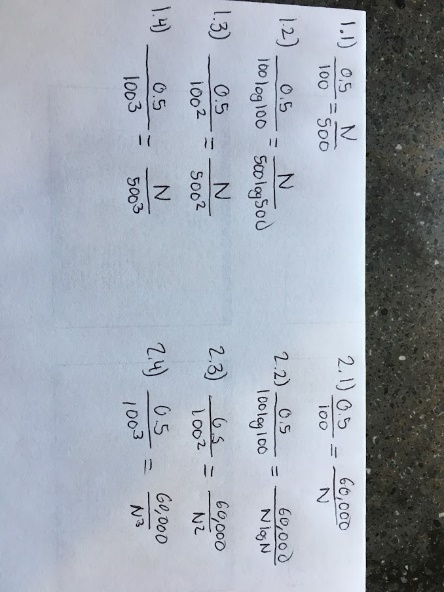 1.1) 0.5/100 = N/500
1.2) 0.5/100log100 = N/500log500
1.3) 0.5/100² = N/500²
1.4) 0.5/100³ = N/500³
2.1) 0.5/100 = 60,000/N
2.2) 0.5/100log100 = 60,000/NlogN
2.3) 0.5/100² = 60,000/N²
2.4) 0.5/100³ = 60,000/N³